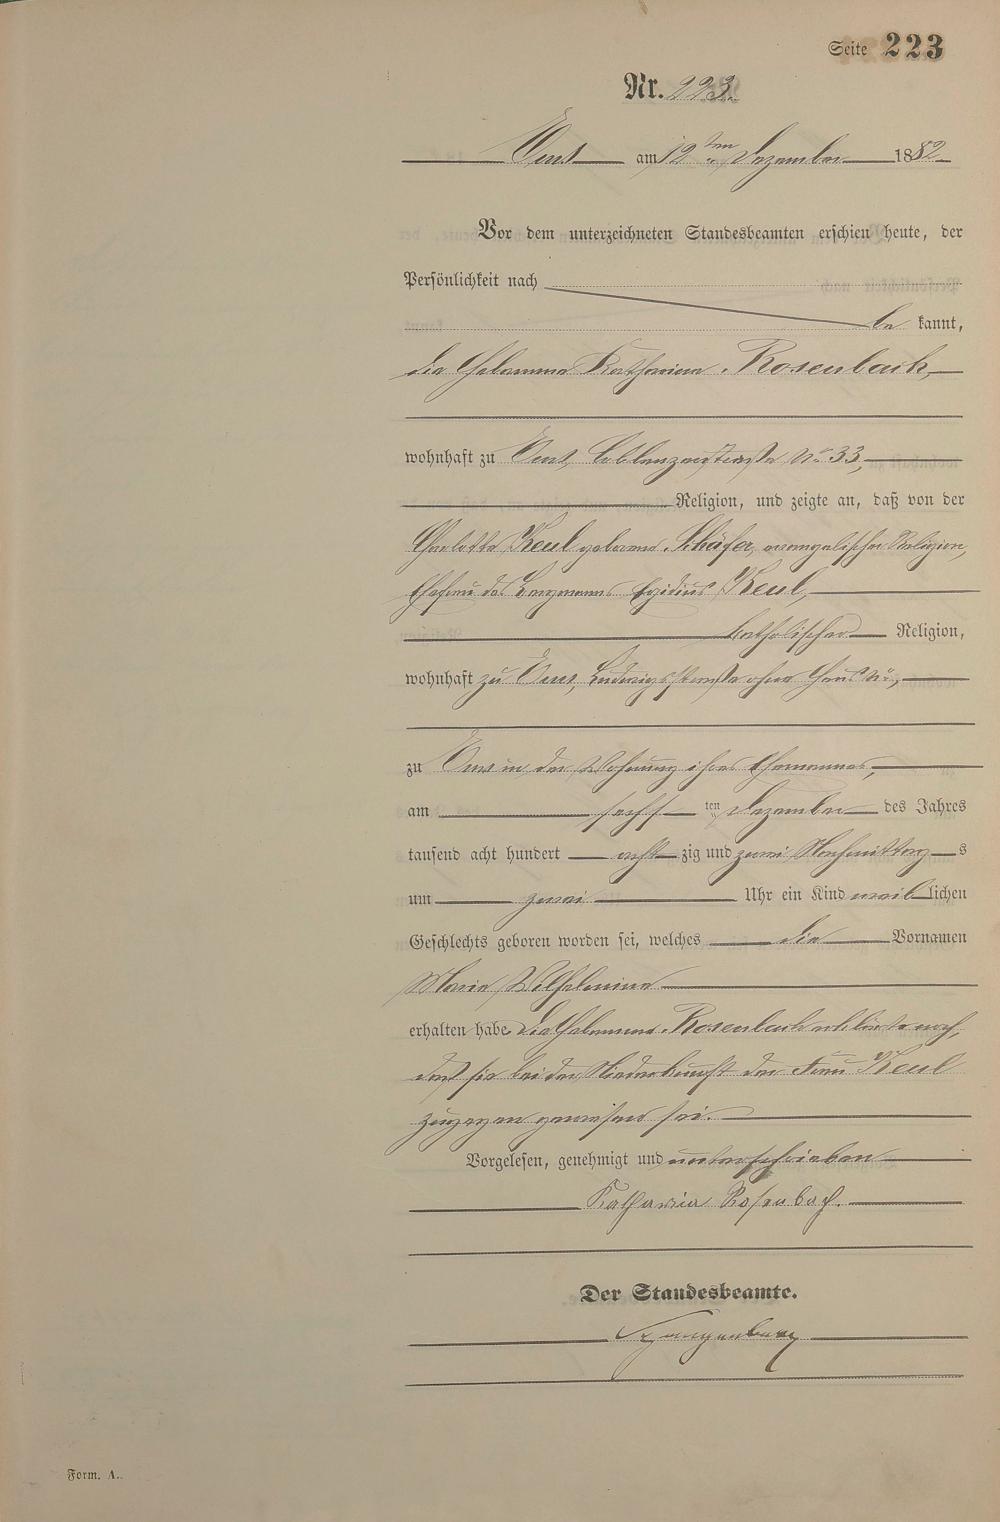 Seite 223
Nr. 223.
Ems am 12ten Dezember 1882
Vor dem unterzeichneten Standesbeamten erschien heute, der
Persönlichkeit nach
be kannt,
die Hebamme Katharina Rosenbach,
wohnhaft zu Ems, Coblenzerstraße No 33,
Religion, und zeigte an, daß von der
Charlotte Keul geborene Schäfer, evangelischer Religion,
Ehefrau des Bergmanns Egidius Keul,
katholischer Religion,
wohnhaft zu Ems, Ludwigsstraße ohne Haus No,
zu Ems in der Wohnung ihres Ehemannes,
am sechs ten Dezember des Jahres
tausend acht hundert acht zig und zwei Nachmittag s
um zwei Uhr ein Kind weib lichen
Geschlechts geboren worden sei, welches die Vornamen
Marie Wilhelmine
erhalten habe. Die Hebamme Rosenbach erklärte noch,
daß sie bei der Niederkunft der Frau Keul
zugegen gewesen sei.
Vorgelesen, genehmigt und unterschrieben
Katharina Rosenbach.
Der Standesbeamte.
Spangenberg
Form. A.